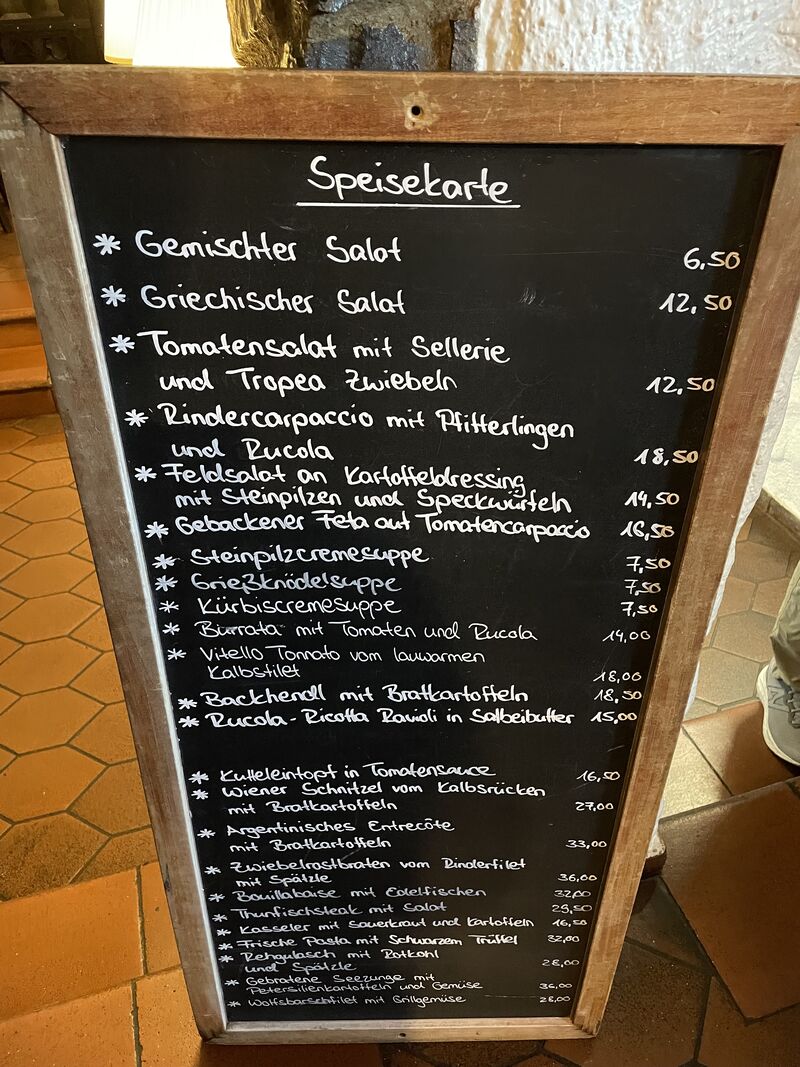 Speisekarte
* Gemischter Salat 6,50
* Griechischer Salat 12,50
* Tomatensalat mit Sellerie
und Tropea Zwiebeln 12,50
* Rindercarpaccio mit Pfifferlingen
und Rucola 18,50
* Feldsalat an Kartoffeldressing
mit Steinpilzen und Speckwürfeln 14,50
* Gebackener Feta auf Tomatencarpaccio 16,50
* Steinpilzcremesuppe 7,50
* Grießknödelsuppe 7,50
* Kürbiscremesuppe 7,50
* Burrata mit Tomaten und Rucola 14,00
* Vitello Tonnato vom lauwarmen
Kalbsfilet 18,00
* Backhendl mit Bratkartoffeln 18,50
* Rucola-Ricotta Ravioli in Salbeibutter 15,00
* Kutteleintopf in Tomatensauce 16,50
* Wiener Schnitzel vom Kalbsrücken
mit Bratkartoffeln 27,00
* Argentinisches Entrecôte
mit Bratkartoffeln 33,00
* Zwiebelrostbraten vom Rinderfilet
mit Spätzle 36,00
* Bouillabaise mit Edelfischen 32,00
* Thunfischsteak mit Salat 29,50
* Kasseler mit Sauerkraut und Kartoffeln 16,50
* Frische Pasta mit Schwarzem Trüffel 32,00
* Rehgulasch mit Rotkohl
und Spätzle 28,00
* Gebratene Seezunge mit
Petersilienkartoffeln und Gemüse 36,00
* Wolfsbarschfilet mit Grillgemüse 28,00